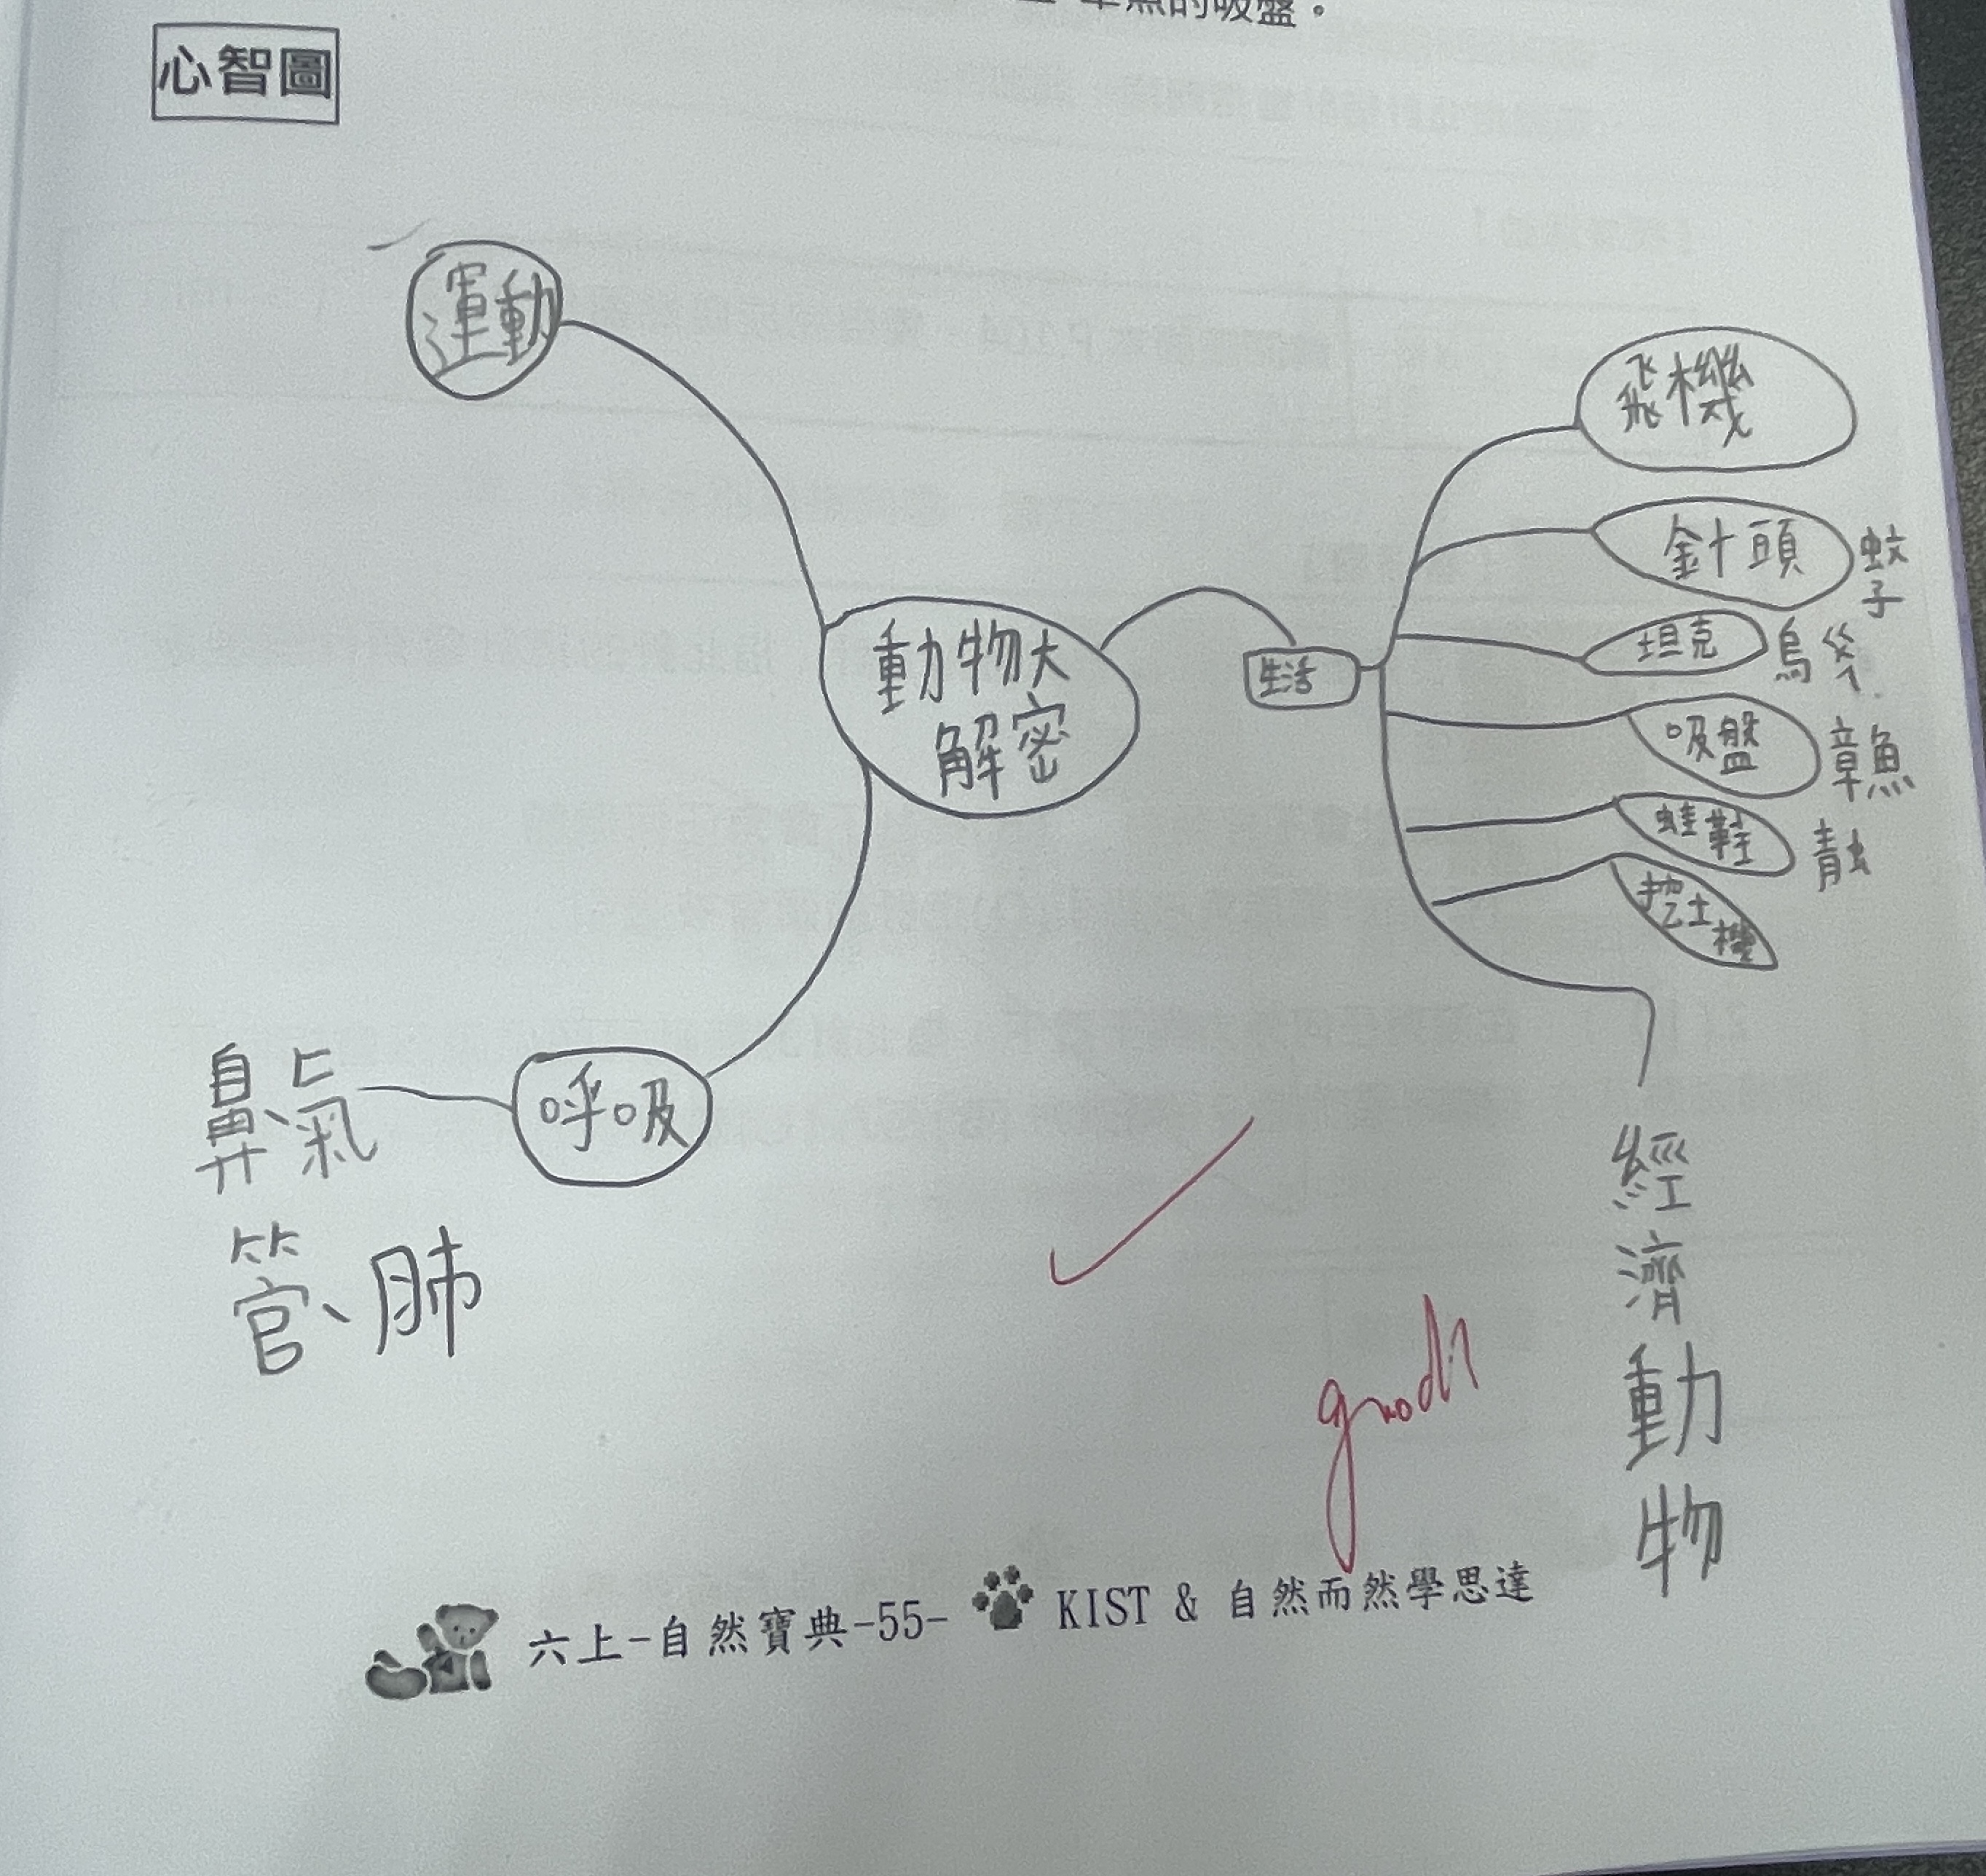 章魚的吸盤。
心智圖
運動
飛機
針頭
蚊子
坦克
烏
吸盤
章魚
蛙鞋
青
挖土機
動物大
解密
生活
呼吸
鼻、氣
管、肺
經濟動物
good!
六上-自然寶典-55- KIST & 自然而然學思達